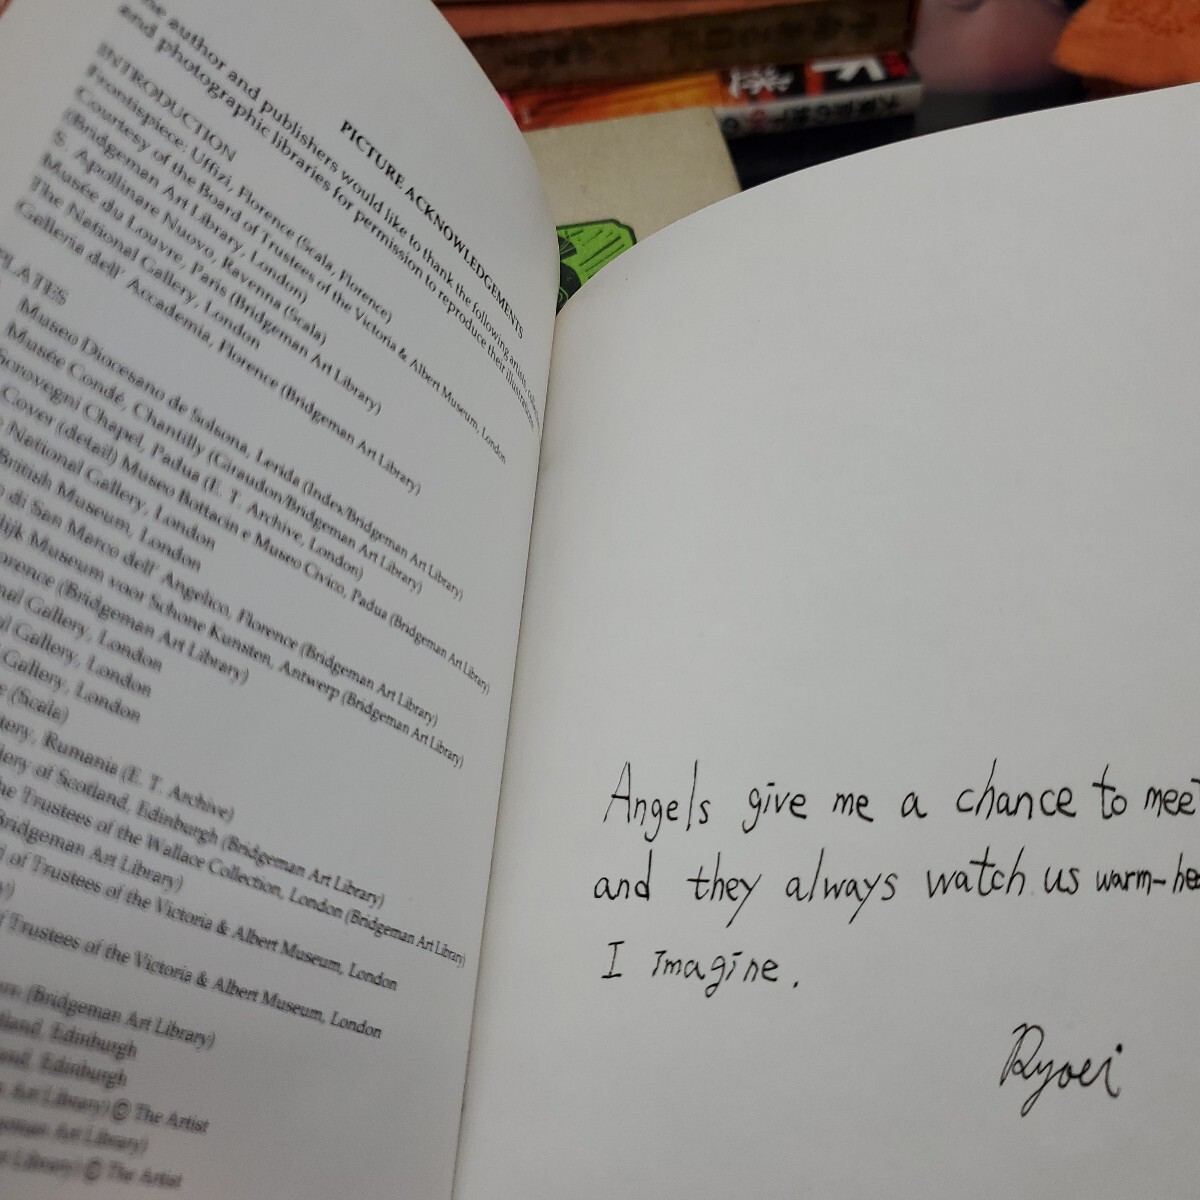 PICTURE ACKNOWLEDGEMENTS
author and publishers would like to thank the following artists,
and photographic libraries for permission to reproduce their illustrations
INTRODUCTION
Frontispiece: Uffizi, Florence (Scala, Florence)
Courtesy of the Board of Trustees of the Victoria & Albert Museum, London
(Bridgeman Art Library, London)
S. Apollinare Nuovo, Ravenna (Scala)
Musée du Louvre, Paris (Bridgeman Art Library)
The National Gallery, London
Galleria dell' Accademia, Florence (Bridgeman Art Library)
PLATES
Museo Diocesano de Solsona, Lerida (Index/Bridgeman Art Library)
Musée Condé, Chantilly (Giraudon/Bridgeman Art Library)
Scrovegni Chapel, Padua (E. T. Archive, London)
Cover (detail) Museo Bottacin e Museo Civico, Padua (Bridgeman Art Library)
National Gallery, London
British Museum, London
di San Marco dell' Angelico, Florence (Bridgeman Art Library)
Museum voor Schone Kunsten, Antwerp (Bridgeman Art Library)
(Bridgeman Art Library)
Gallery, London
Gallery, London
Gallery, London
(Scala)
Rumania (E. T. Archive)
of Scotland, Edinburgh (Bridgeman Art Library)
Trustees of the Wallace Collection, London (Bridgeman Art Library)
Bridgeman Art Library)
of Trustees of the Victoria & Albert Museum, London
Trustees of the Victoria & Albert Museum, London
(Bridgeman Art Library)
Edinburgh
Edinburgh
Art Library) © The Artist
Art Library)
Library) © The Artist
Angels give me a chance to meet
and they always watch us warm-
I imagine.
Ryoei